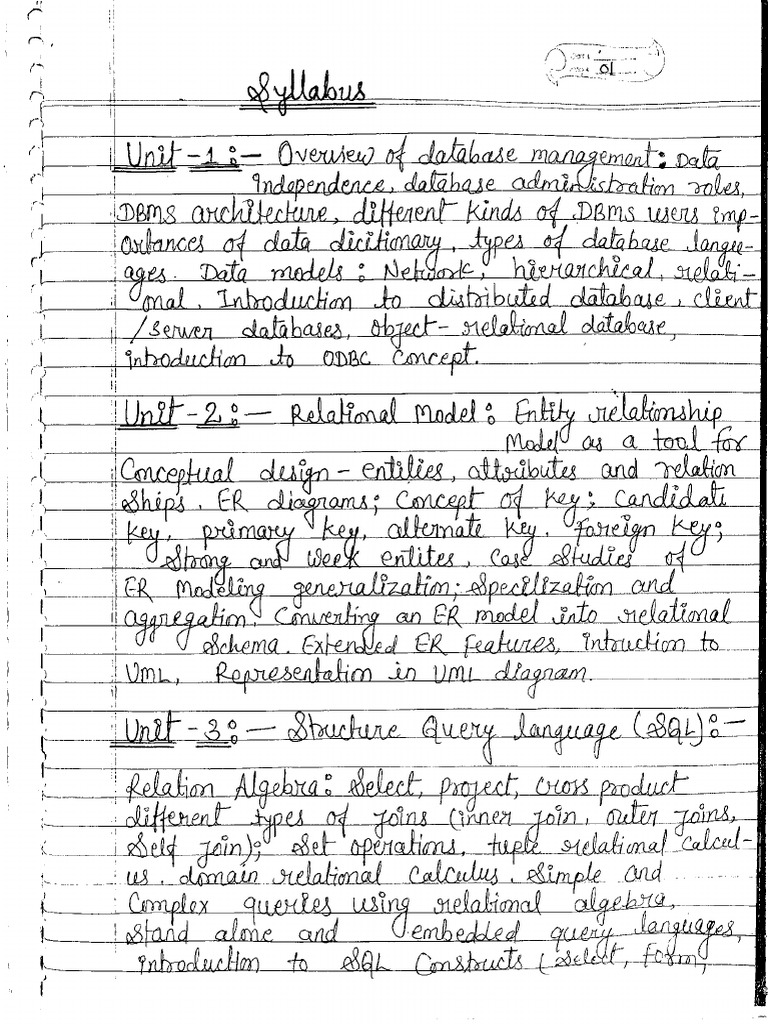 01
Syllabus
Unit-1:— Overview of database management: Data
independence, database administration roles,
DBMS architecture, different kinds of DBMS users imp-
ortances of data dicitionary, types of database langu-
ages. Data models: Network, hierarchical, relati-
onal. Introduction to distributed database, client
/server databases, object-relational database,
introduction to ODBC concept.
Unit-2:— Relational Model: Entity relationship
Model as a tool for
Conceptual design-entities, attributes and relation
ships. ER diagrams; Concept of key; Candidate
key, primary key, alternate key. foreign key;
Strong and week entites, case studies of
ER Modeling generalization; Specilization and
aggregation. Converting an ER model into relational
Schema. Extended ER features, intruction to
UML, Representation in UML diagram.
Unit-3:— Structure Query language (SQL):—
Relation Algebra: Select, project, cross product
different types of joins (inner join, outer joins,
Self join); Set operations, tuple relational calcul-
us. domain relational calculus. Simple and
Complex queries using relational algebra,
stand alone and embedded query languages,
introduction to SQL Constructs (Select, form,